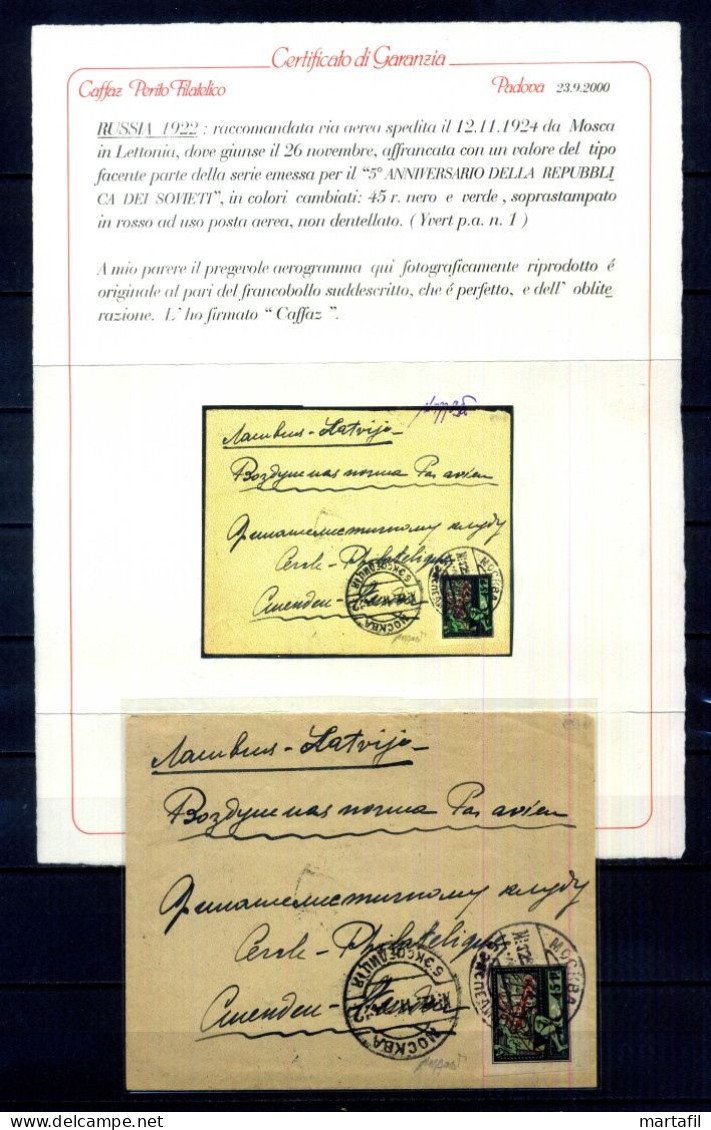 Certificato di Garanzia
Caffaz Perito Filatelico
Padova 23.9.2000
RUSSIA 1922 : raccomandata via aerea spedita il 12.11.1924 da Mosca
in Lettonia, dove giunse il 26 novembre, affrancata con un valore del tipo
facente parte della serie emessa per il “5° ANNIVERSARIO DELLA REPUBBLI
CA DEI SOVIETI”, in colori cambiati: 45 r. nero e verde, soprastampato
in rosso ad uso posta aerea, non dentellato. ( Yvert p.a. n. 1 )
A mio parere il pregevole aerogramma qui fotograficamente riprodotto é
originale al pari del francobollo suddescritto, che é perfetto, e dell’ oblite
razione. L’ ho firmato “ Caffaz ”.
Латвия - Latvija
Воздушная почта Par avion
Филателистичному клубу
Cercle - Philatelique
МОСКВА
5 ЭКСПЕДИЦІЯ
МОСКВА
45 Р.
Латвия - Latvija
Воздушная почта Par avion
Филателистичному клубу
Cercle - Philatelique
МОСКВА
5 ЭКСПЕДИЦІЯ
МОСКВА
45 Р.
martafil